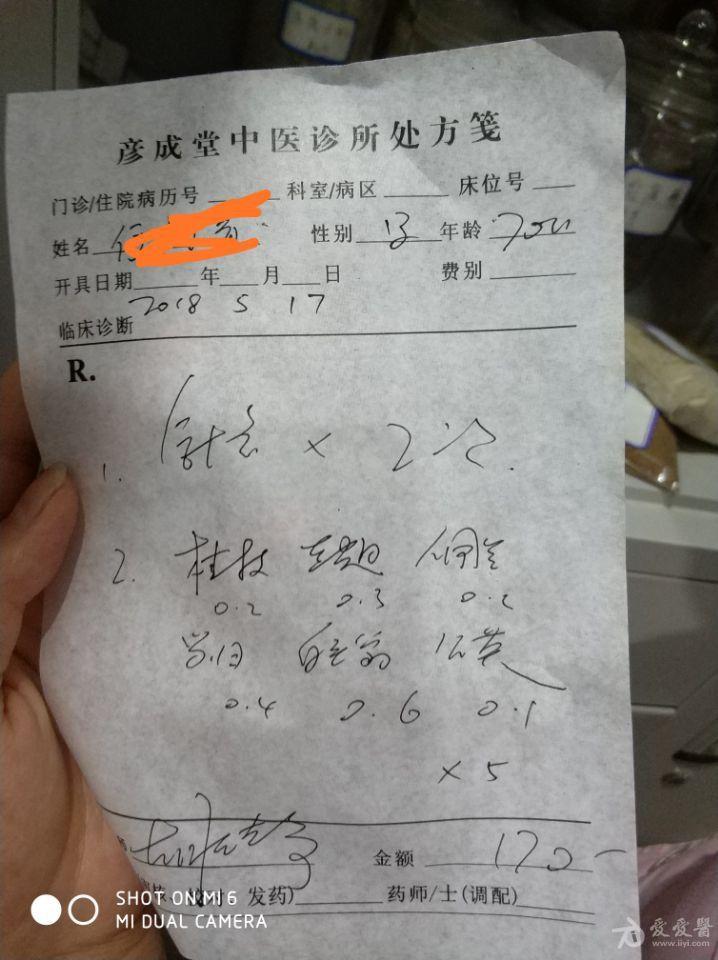 彦成堂中医诊所处方笺
门诊/住院病历号 科室/病区 床位号
姓名 性别 年龄 70
开具日期 年 月 日 费别
2018 5 17
临床诊断
R.
1. 针灸 × 2次.
2. 桂枝
0.2 0.3 0.2
当归 白头翁 公英
0.4 0.6 0.1
× 5
金额 170-
发药) 药师/士(调配)
SHOT ON MI 6
MI DUAL CAMERA
爱爱醫
www.iiyi.com